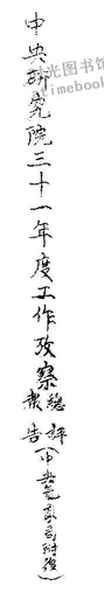 中央研究院三十一年度工作攷察
總評
報告
(中央氣象局附後)
光图书馆
imebook